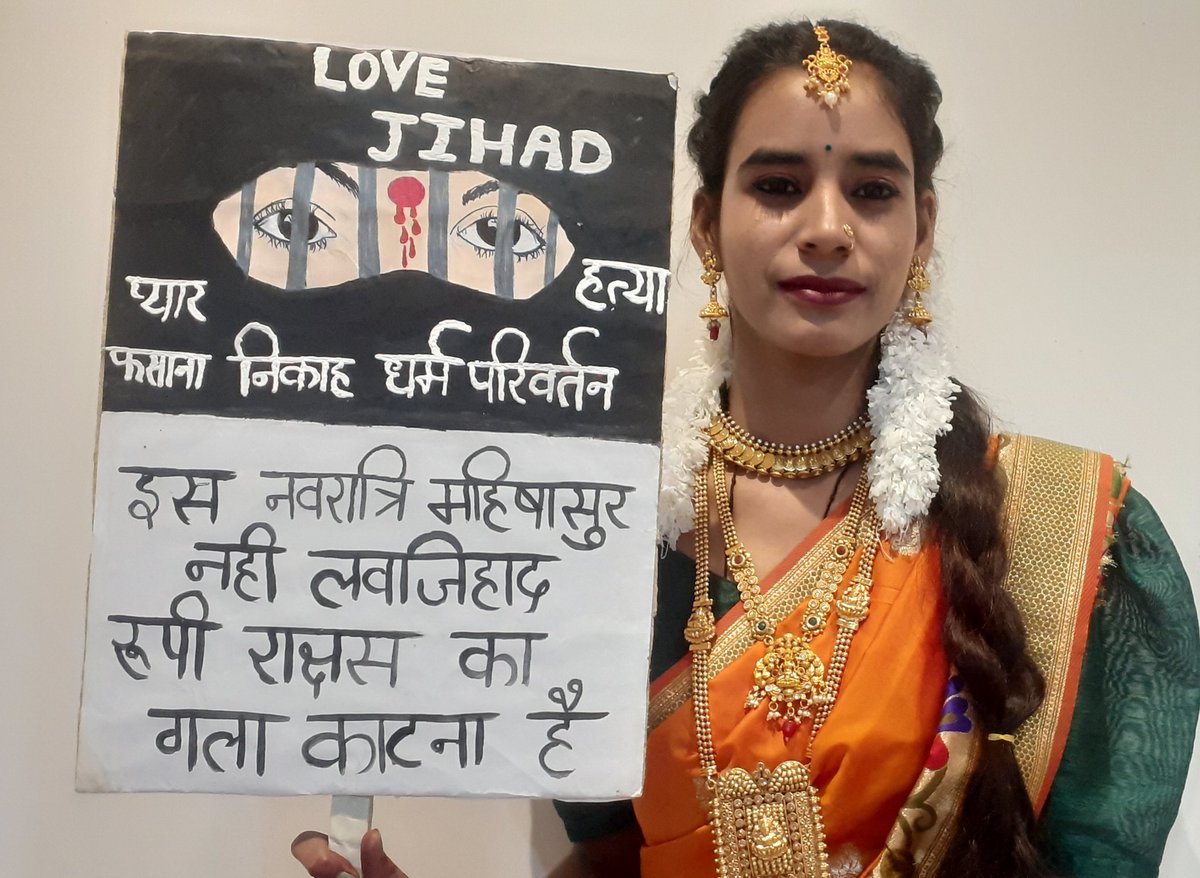 LOVE
JIHAD
प्यार
हत्या
फसाना निकाह धर्म परिवर्तन
इस नवरात्रि महिषासुर
नही लवजिहाद
रूपी राक्षस का
गला काटना है